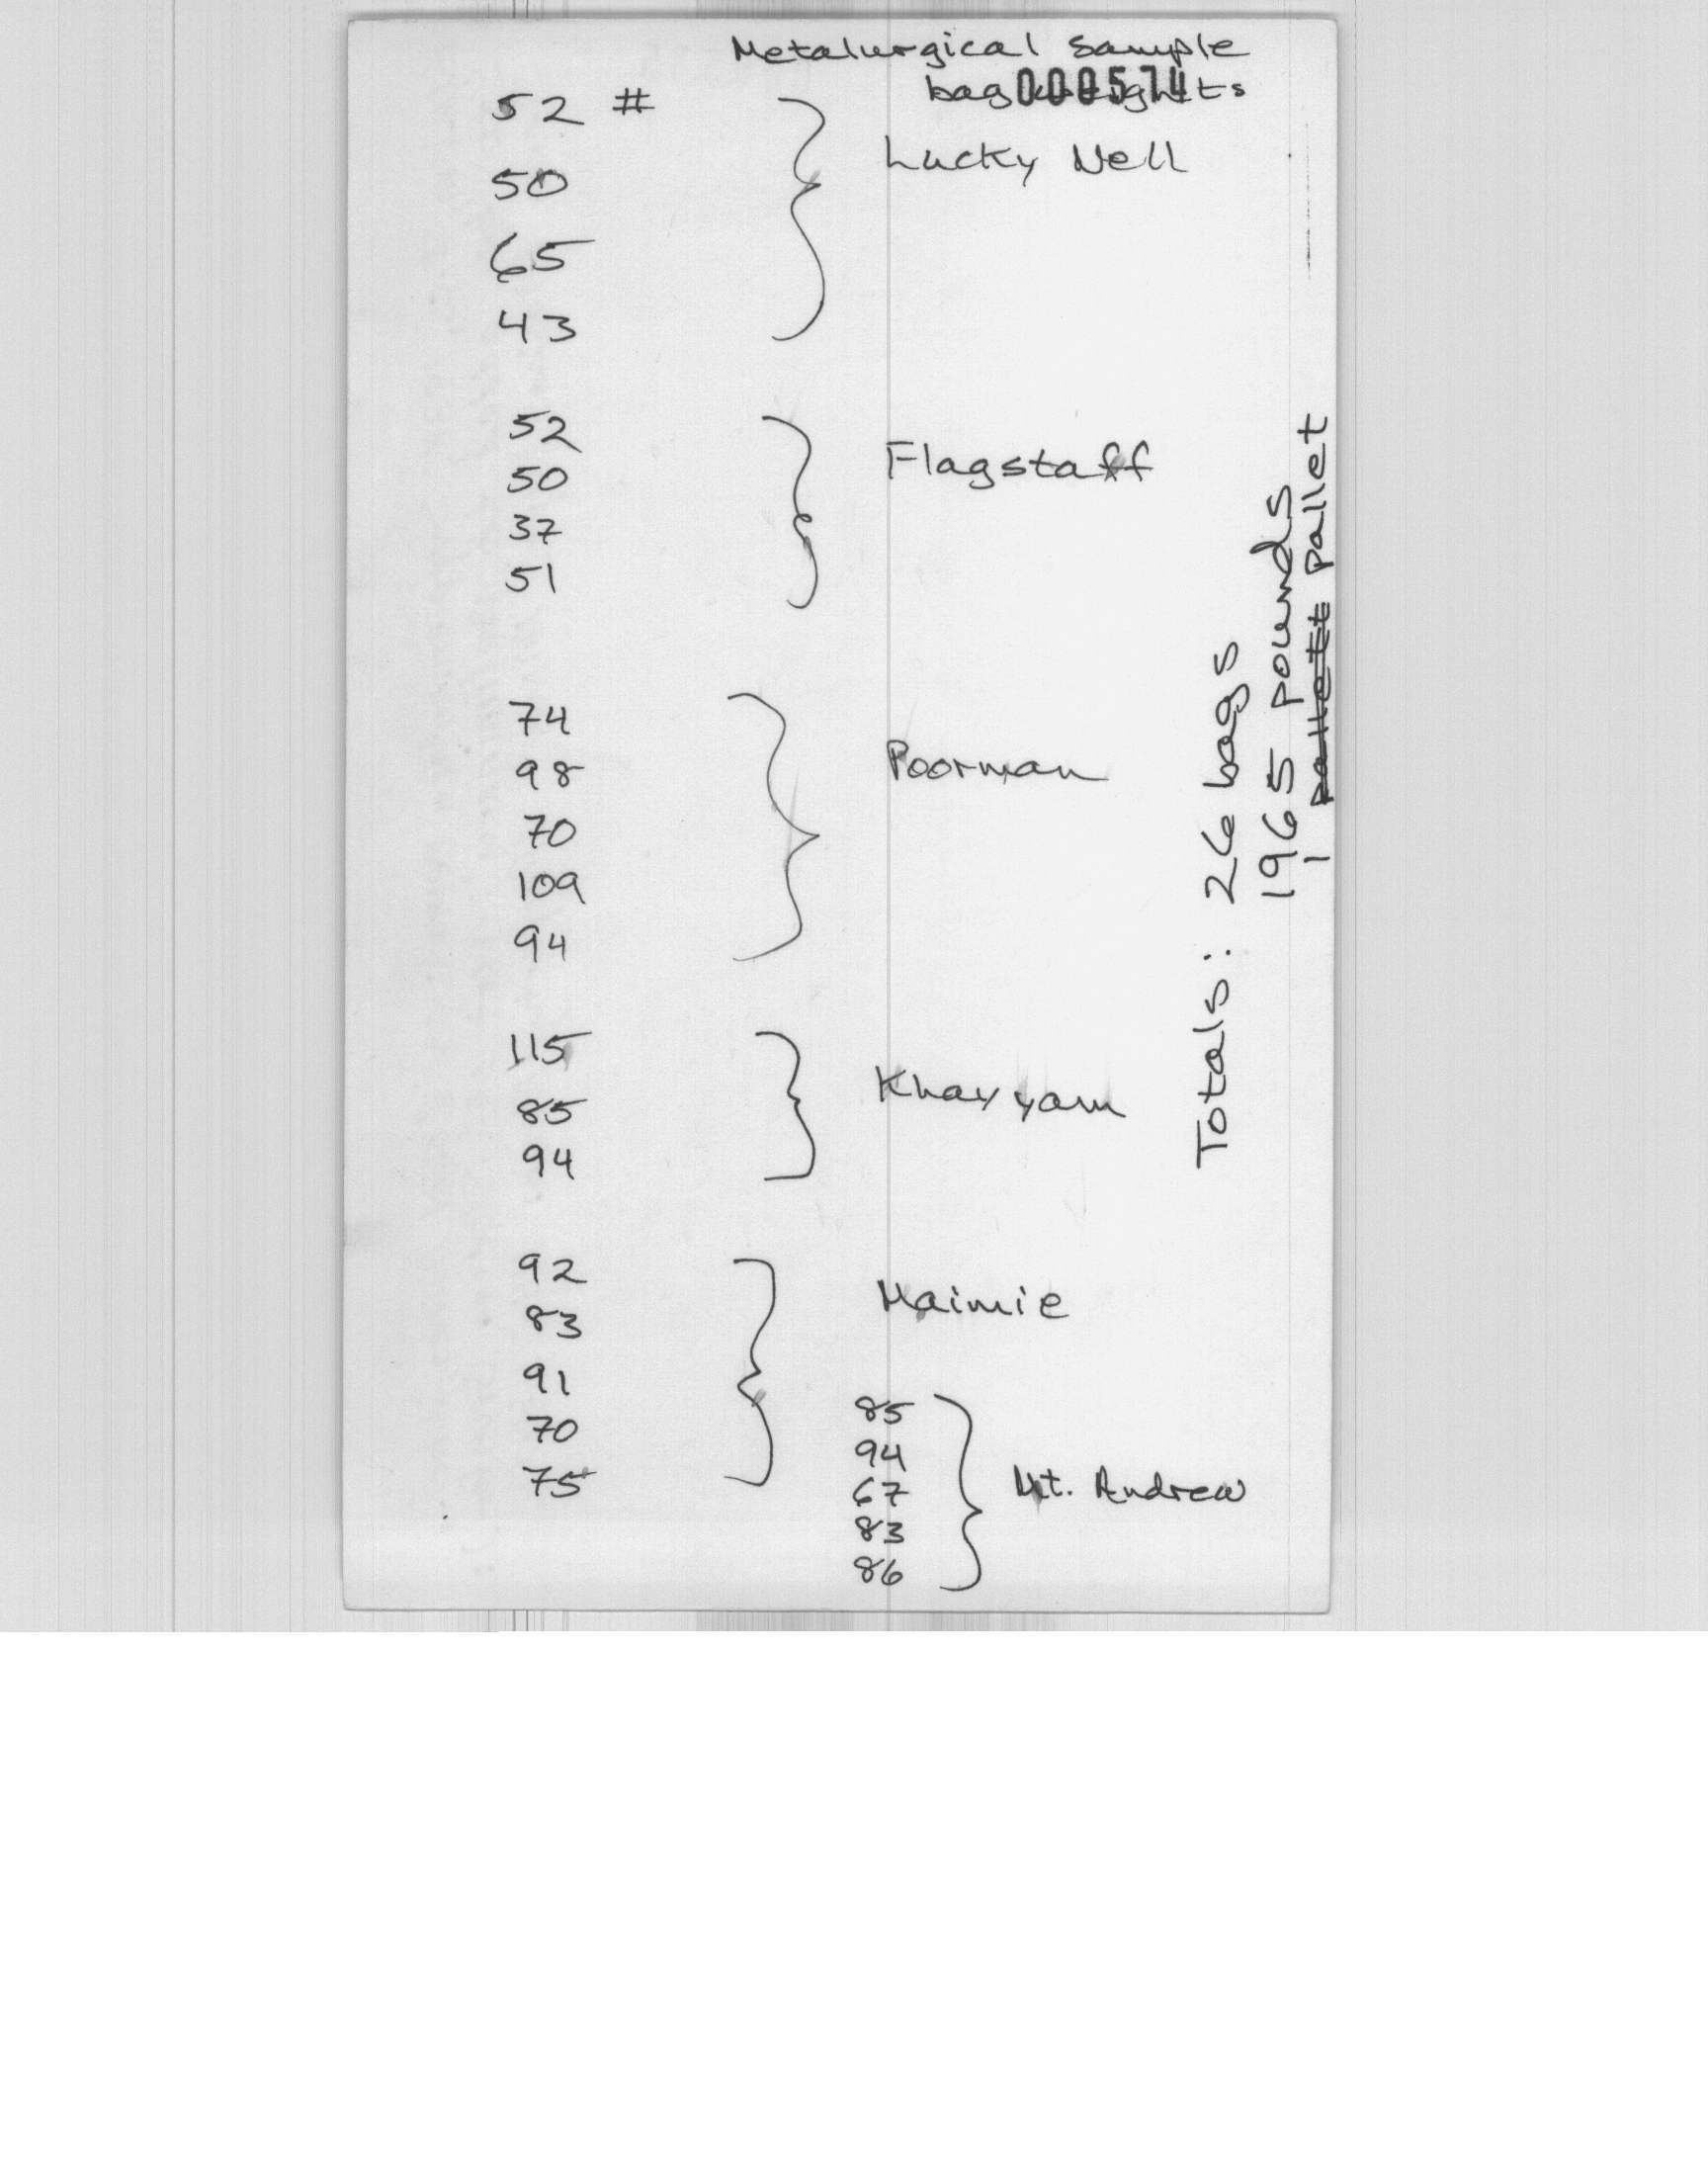 Metalurgical Sample
bag weights
000574
52 #
50
65
43
Lucky Nell
52
50
37
51
Flagstaff
74
98
70
109
94
Poorman
115
85
94
Khayyam
92
83
91
70
75
Maimie
85
94
67
83
86
Mt. Andrew
Totals: 26 bags
1965 pounds
1 pallett pallet